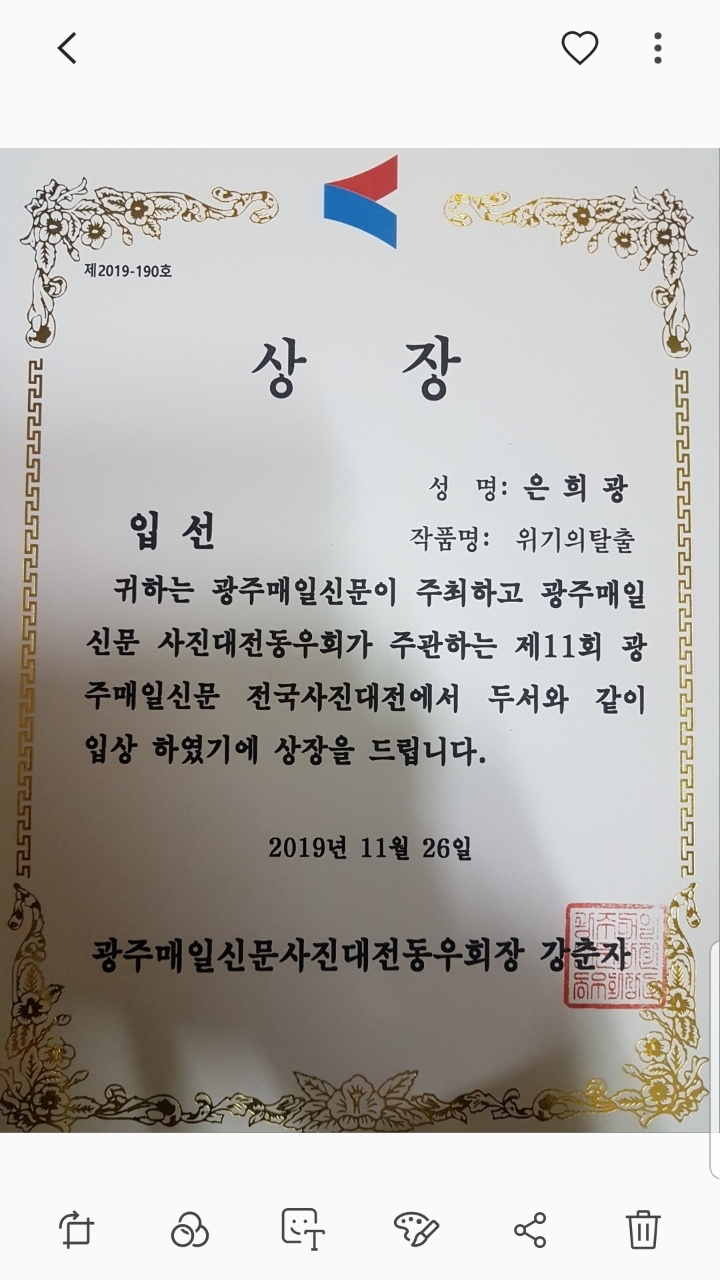 제2019-190호
상 장
성 명: 은 희 광
입 선
작품명: 위기의탈출
귀하는 광주매일신문이 주최하고 광주매일
신문 사진대전동우회가 주관하는 제11회 광
주매일신문 전국사진대전에서 두서와 같이
입상 하였기에 상장을 드립니다.
2019년 11월 26일
광주매일신문사진대전동우회장 강춘자